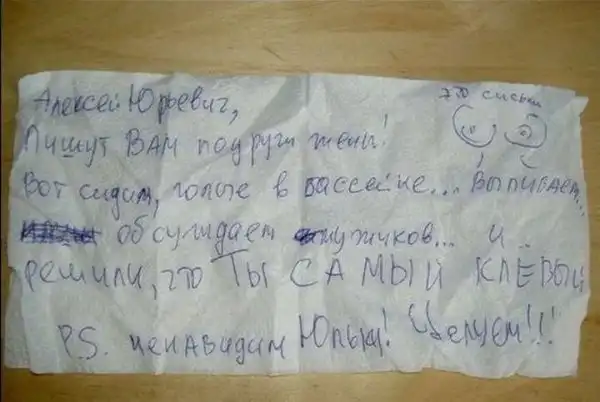 это сиськи
Алексей Юрьевич,
Пишут ВАМ подруги жены!
Вот сидим, голые в бассейне... Выпиваем...
обсуждаем мужчков... и..
решили, что ТЫ САМЫЙ КЛЁВЫЙ
P.S. ненавидим Юльку! Целуем!!!